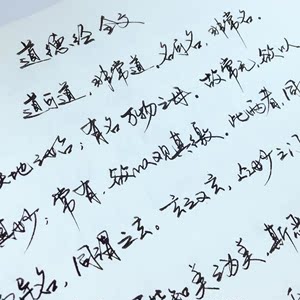 道德经全文
道可道，非常道。名可名，非常名。
天地之始；有名万物之母。故常无，欲以
其妙；常有，欲以观其徼。此两者，同
异名，同谓之玄。玄之又玄，众妙之门
皆知美之为美，斯恶